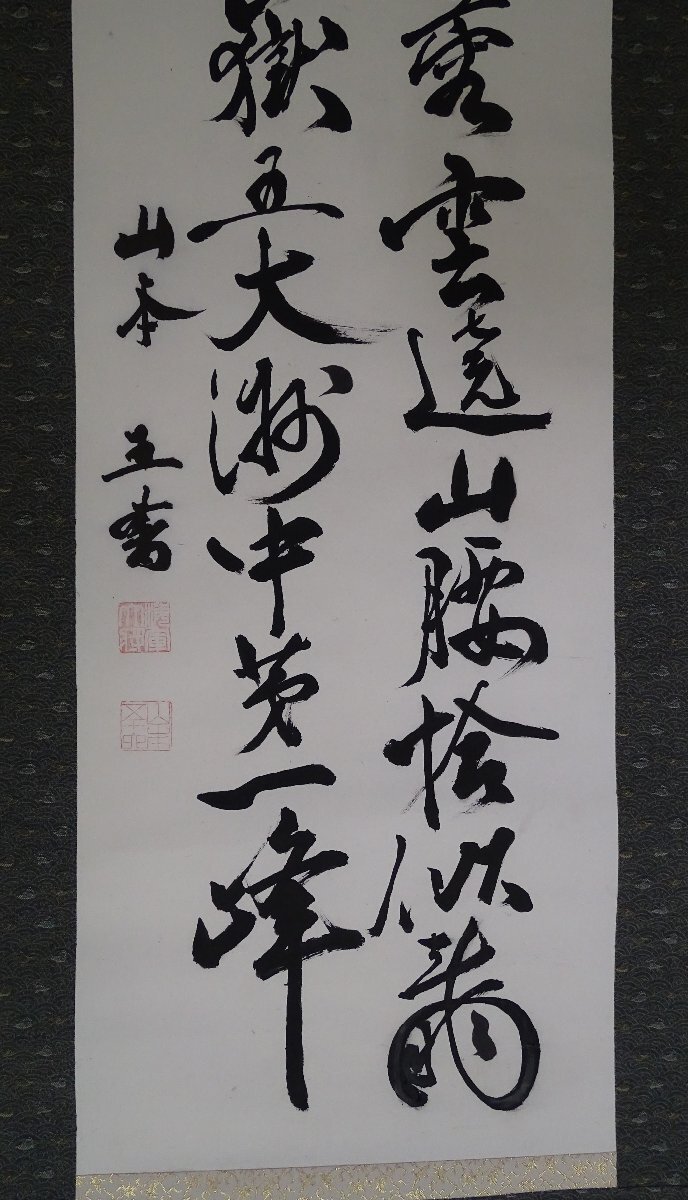 雲遶山腰恰似龍
嶽五大洲中第一峰
山本 書